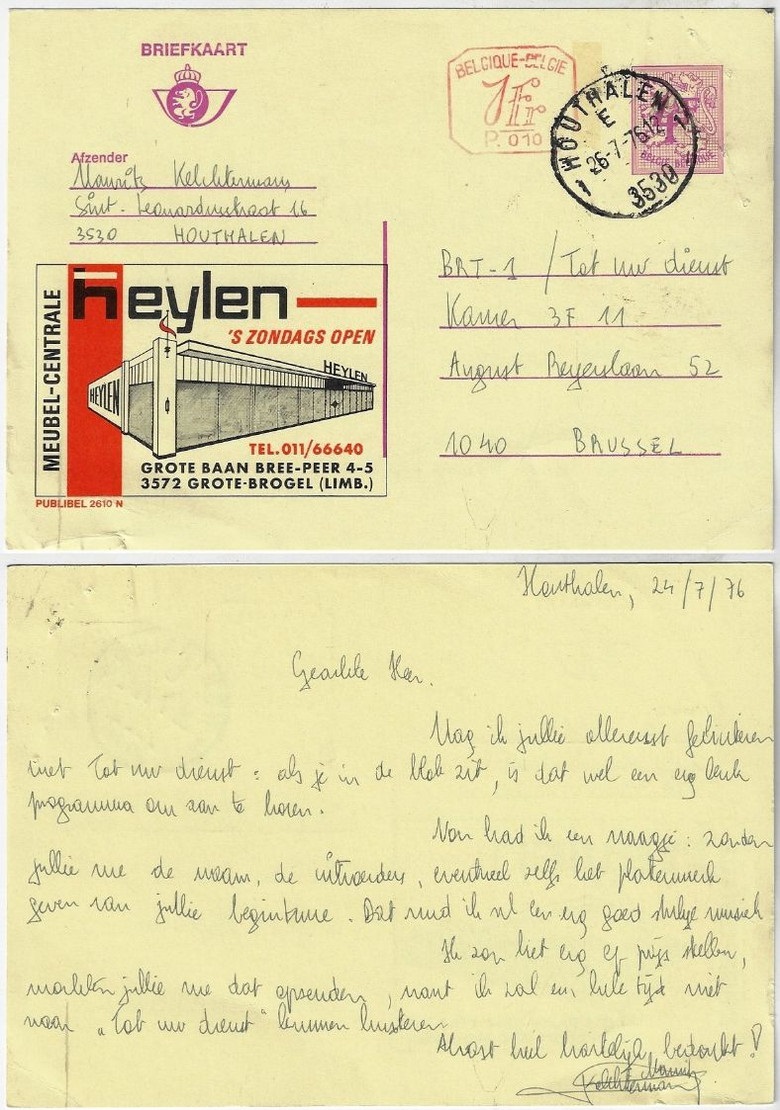 BRIEFKAART
BELGIQUE-BELGIE
1Fr
P. 010
HOUTHALEN
E
26-7-76 12
1 1
3530
F
BELGIË BELGIQUE
Afzender
Maurits Kelchtermans
Sint-Leonardusstraat 16
3530 HOUTHALEN
BRT-1 / Tot uw dienst
Kamer 3F11
August Reyerslaan 52
1040 BRUSSEL
MEUBEL-CENTRALE
heylen
'S ZONDAGS OPEN
HEYLEN
HEYLEN
TEL.011/66640
GROTE BAAN BREE-PEER 4-5
3572 GROTE-BROGEL (LIMB.)
PUBLIBEL 2610 N
Houthalen, 24/7/76
Geachte Heer.
Mag ik jullie allereerst feliciteren
met Tot uw dienst: als je in de blok zit, is dat wel een erg leuk
programma om aan te horen.
Nou had ik een vraagje: zouden
jullie me de naam, de uitvoerders, eventueel zelfs het platenmerk
geven van jullie begintune. Dat vind ik nl een erg goed stukje muziek
Ik zou het erg op prijs stellen,
mochten jullie me dat opzenden, want ik zal een hele tijd niet
naar "Tot uw dienst" kunnen luisteren
Alvast heel hartelijk bedankt!
Maurits
Kelchtermans